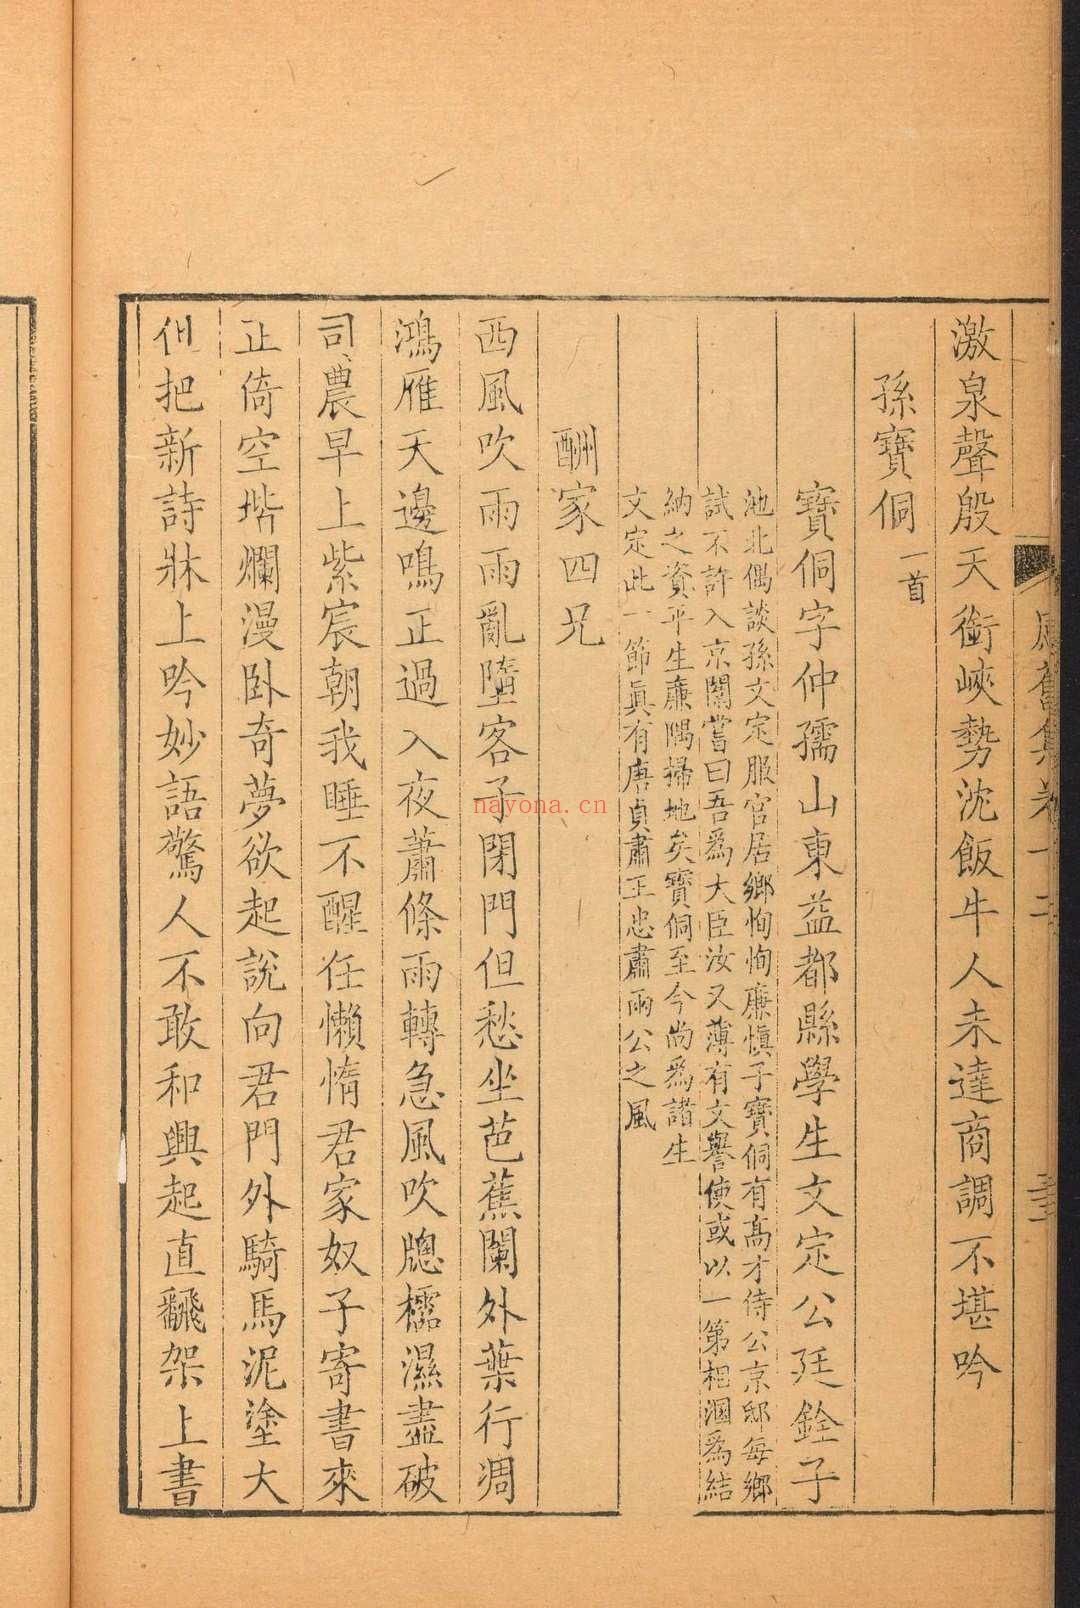 激泉聲殷天銜峽勢沈飯牛人未達商調不堪吟
孫寶侗一首
寶侗字仲孺山東益都縣學生文定公廷銓子
池北偶談孫文定服官居鄉恂恂廉慎子寶侗有高才侍公京邸每鄉
試不許入京闈嘗曰吾為大臣汝又薄有文譽使或以一第相溷為結
納之資平生廉隅掃地矣寶侗至今尚為諸生
文定此一節眞有唐貞肅王忠肅兩公之風
酬家四兄
西風吹雨雨亂墮客子閉門但愁坐芭蕉闌外葉行凋
鴻雁天邊鳴正過入夜蕭條雨轉急風吹牕櫺濕盡破
司農早上紫宸朝我睡不醒任懶惰君家奴子寄書來
正倚空堦爛漫臥奇夢欲起說向君門外騎馬泥塗大
但把新詩牀上吟妙語驚人不敢和興起直飜架上書
感舊集卷十二
nayona.cn